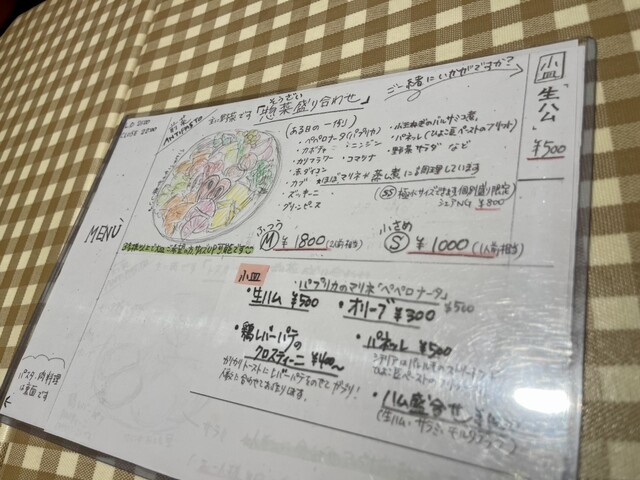 CLOSE 22:00
前菜
ANTIPASTO
お野菜です「惣菜盛り合わせ」
そうざい
ご一緒にいかがですか?
小皿「生ハム」
¥500
(ある日の一例)
・ペペロナータ(パプリカ)
・カボチャ ・ニンジン
・カリフラワー ・コマツナ
・赤ダイコン
・カブ
・ズッキーニ
・グリーンピース
・小玉ねぎのバルサミコ煮
・パネッレ(ひよこ豆ペーストのフリット)
・野菜サラダ など
ほぼマリネか蒸し煮にお料理しています
SS 極小サイズ
個別盛り限定
シェアNG ¥800
ふつう
M ¥1800(2人前相当)
小さめ
S ¥1000(1人前相当)
MENU
小皿
・パプリカのマリネ「ペペロナータ」
¥500
・生ハム ¥500
・オリーブ ¥300
・鶏レバーパテの
クロスティーニ ¥400〜
カリカリトーストにレバーパテをのせてガブリ!
・パネッレ ¥500
・ハム盛合せ
(生ハム・サラミ・モルタデッラ)
パスタ・肉料理
は裏面です